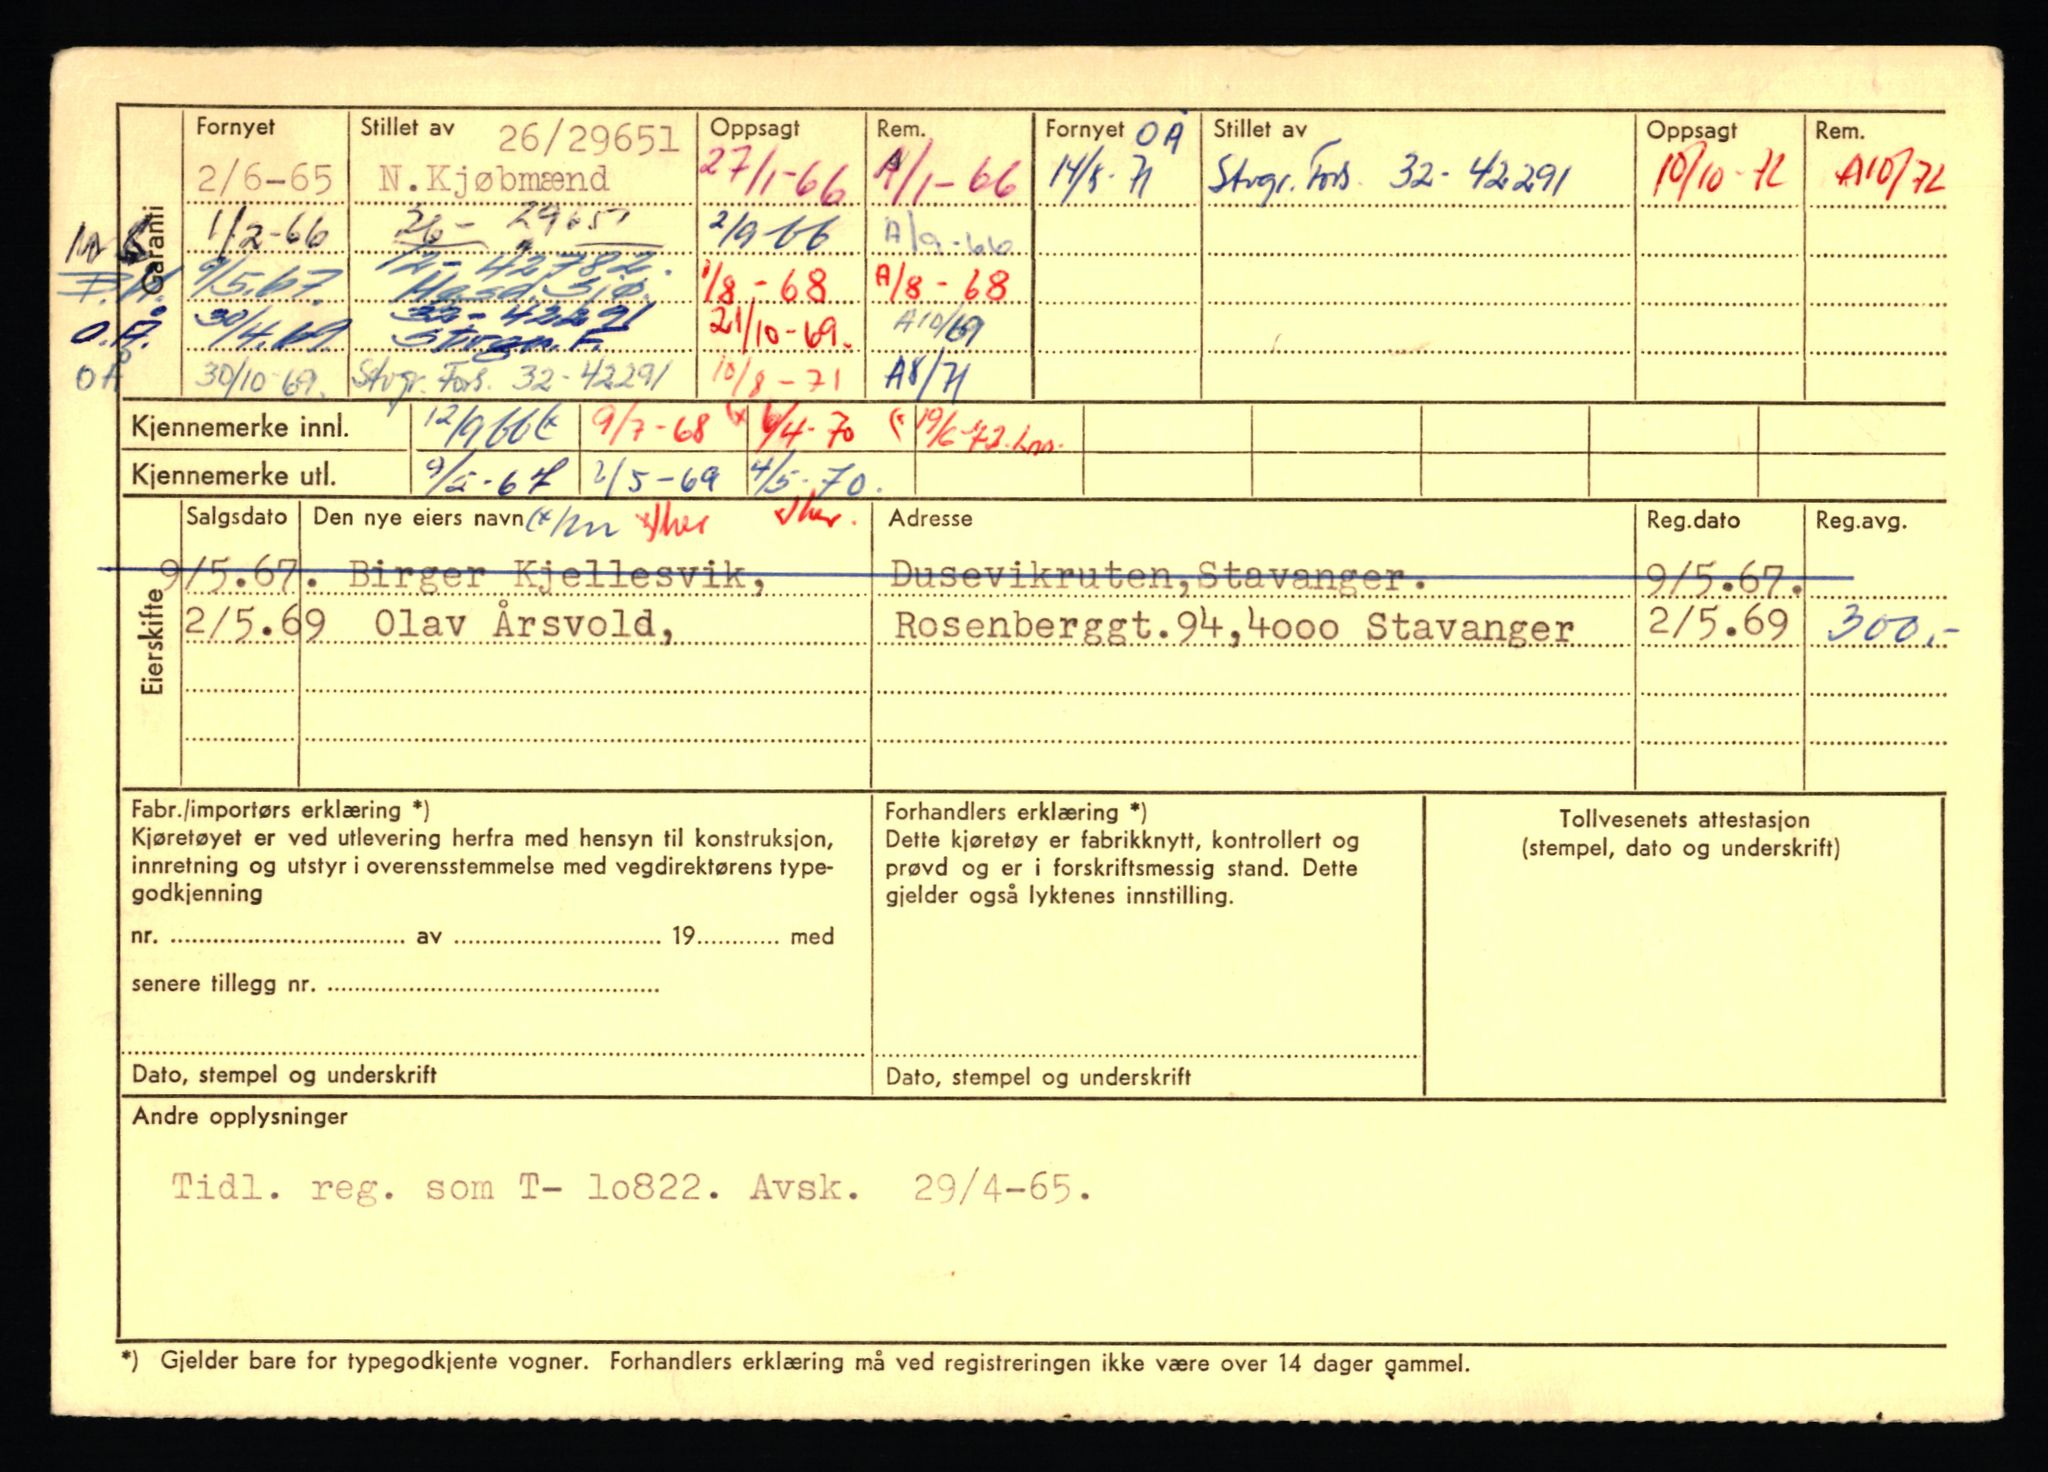 Garanti
Fornyet Stillet av 26/29651 Oppsagt Rem. Fornyet OÅ Stillet av Oppsagt Rem.
2/6-65 N.Kjøbmænd 27/1-66 A/1-66 14/5-71 Stvgr. Fors. 32-42291 10/10-72 A10/72
1/2-66 26-29651 2/9 66 A/9-66
9/5.67. 12-42782. 1/8-68 A/8-68
O.Å. 30/4.69. 32-42291 21/10-69. A10/69
OÅ 30/10-69. Stvgr. Fors. 32-42291 10/8-71 A8/71
Kjennemerke innl. 12/9 66 9/7-68 6/4-70 19/6-72.
Kjennemerke utl. 9/5-67 2/5-69 4/5-70.
Eierskifte
Salgsdato Den nye eiers navn Adresse Reg.dato Reg.avg.
9/5.67. Birger Kjellesvik, Dusevikruten, Stavanger. 9/5.67.
2/5.69 Olav Årsvold, Rosenberggt.94,4000 Stavanger 2/5.69 300.-
Fabr./importørs erklæring *)
Kjøretøyet er ved utlevering herfra med hensyn til konstruksjon,
innretning og utstyr i overensstemmelse med vegdirektørens type-
godkjenning
nr. av 19 med
senere tillegg nr.
Dato, stempel og underskrift
Forhandlers erklæring *)
Dette kjøretøy er fabrikknytt, kontrollert og
prøvd og er i forskriftsmessig stand. Dette
gjelder også lyktenes innstilling.
Dato, stempel og underskrift
Tollvesenets attestasjon
(stempel, dato og underskrift)
Andre opplysninger
Tidl. reg. som T- lo822. Avsk. 29/4-65.
*) Gjelder bare for typegodkjente vogner. Forhandlers erklæring må ved registreringen ikke være over 14 dager gammel.